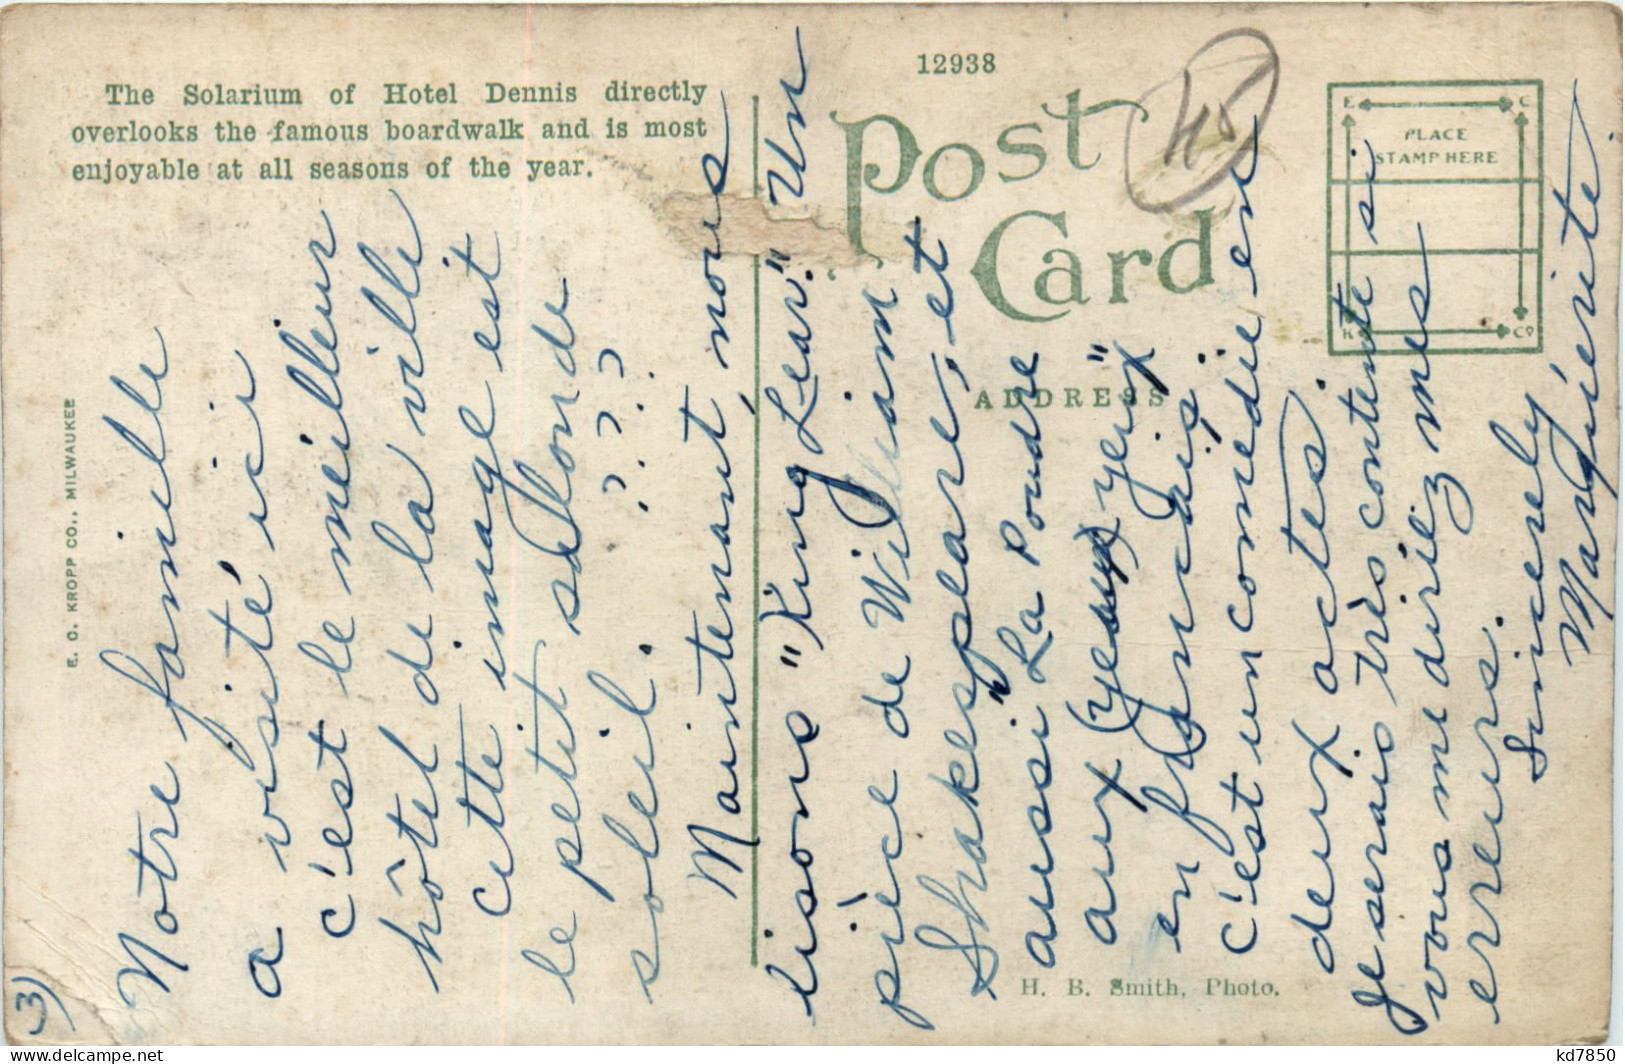 12938
The Solarium of Hotel Dennis directly
overlooks the famous boardwalk and is most
enjoyable at all seasons of the year.
Post
Card
45
E C
PLACE
STAMP HERE
K Co
ADDRESS
E. C. KROPP CO., MILWAUKEE
H. B. Smith, Photo.
3)
Notre famille
a visité ici
c'est le meilleur
hôtel de la ville
cette image est
le petit sallon de
soleil. ? ? ?
Maintenant, nous
lisons "King Lear." Un
pièce de William
Shakespeare, et
aussi "La Poudre
aux (yeaux) yeux"
en français.
c'est un comédie en
deux actes.
Je serais très contente si
vous me diriez mes
erreurs.
Sincerely
Marguérite
kd7850